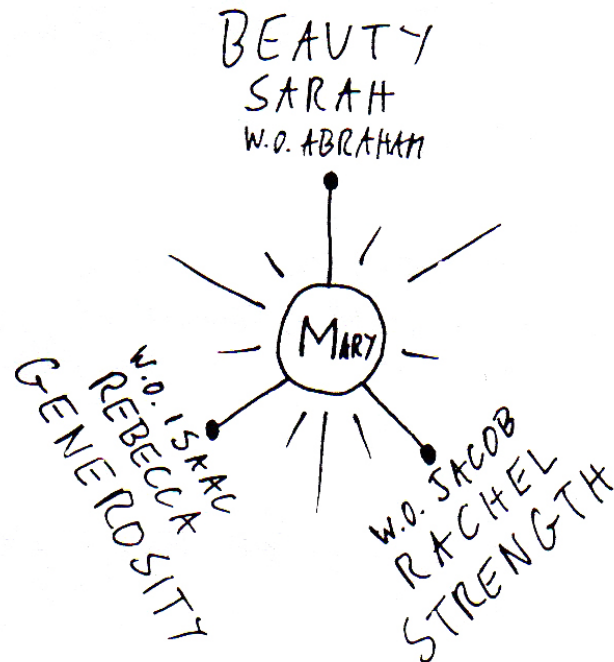 BEAUTY
SARAH
W.O. ABRAHAM
MARY
W.O. ISAAC
REBECCA
GENEROSITY
W.O. JACOB
RACHEL
STRENGTH